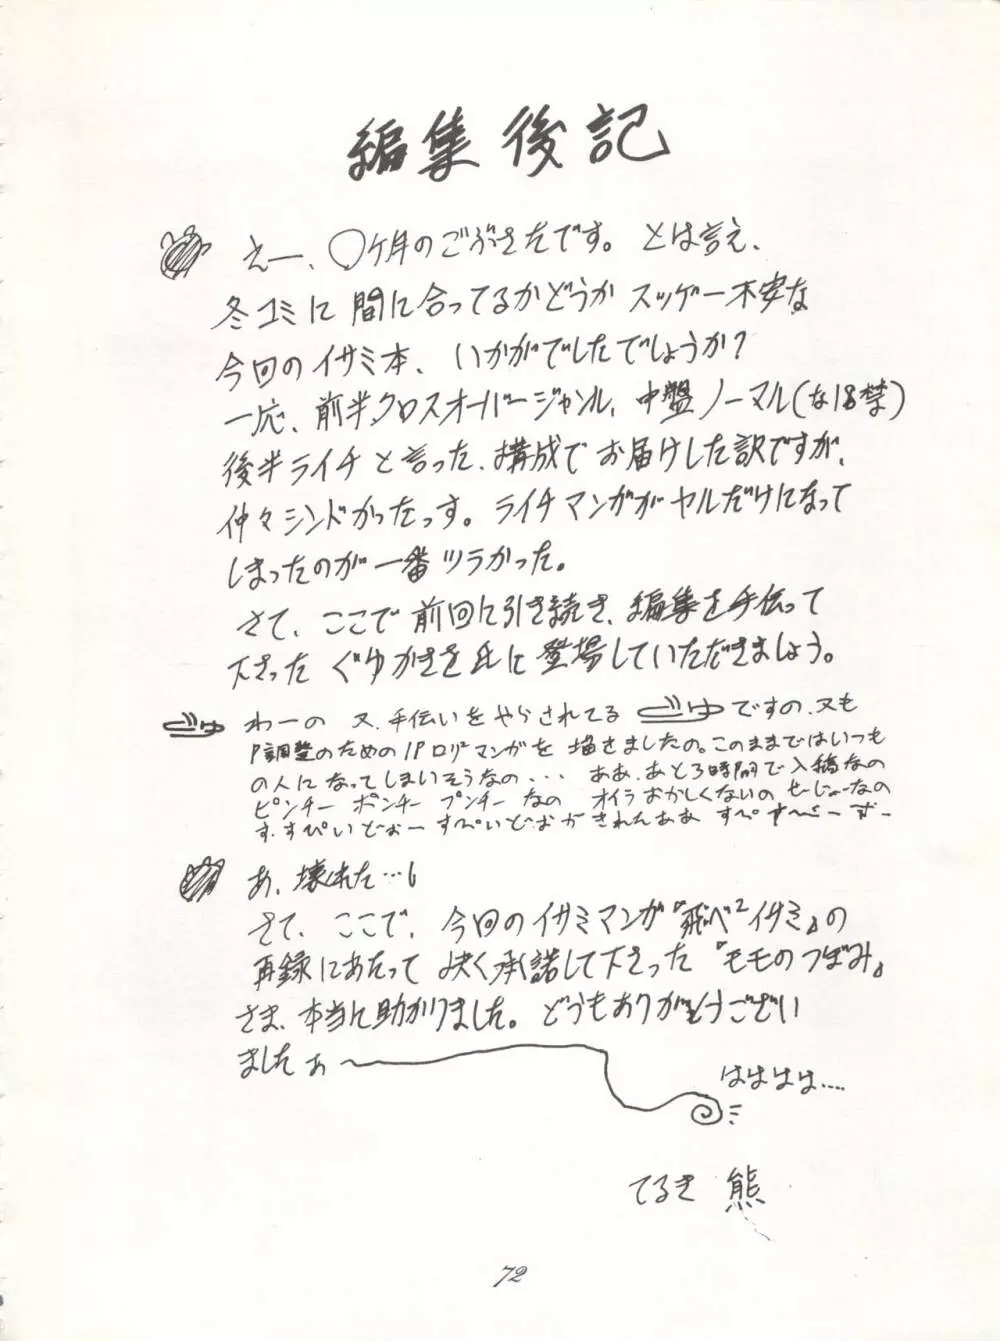 編集後記
えー、〇ヶ月のごぶさたです。とは言え、
冬コミに間に合ってるかどうかスッゲー不安な
今回のイサミ本、いかがでしたでしょうか?
一応、前半クロスオーバージャンル、中盤ノーマル(な18禁)
後半ライチと言った、構成でお届けした訳ですが、
仲々シンドかったっす。ライチマンガがヤルだけになって
しまったのが一番ツラかった。
さて、ここで前回に引き続き、編集を手伝って
下さったぐゆかささ氏に登場していただきましょう。
わーの 又、手伝いをやらされてる ゆですの、又も
P調整のための1Pロリマンガを描きましたの。このままではいつも
の人になってしまいそうなの... ああ、あと3時間で入稿なの
ピンチー ポンチー プンチー なの オイラおかしくないの
す、すぴいどぉー すぴいどおがされたああ
あ、壊れた…。
さて、ここで、今回のイサミマンガ『飛べ2イサミ』の
再録にあたって 快く承諾して下さった『モモのつぼみ』
さま、本当に助かりました。どうもありがとうござい
ましたぁ〜
はははは....
てるき熊
72